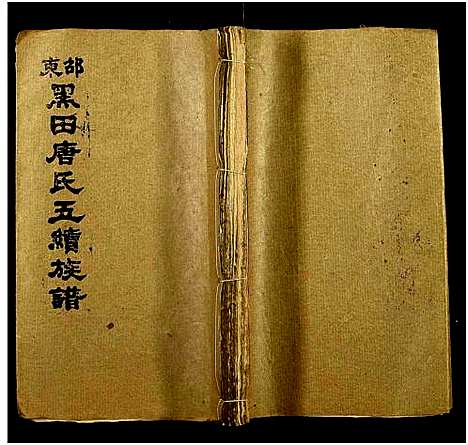 邵東
黑田唐氏五續族譜